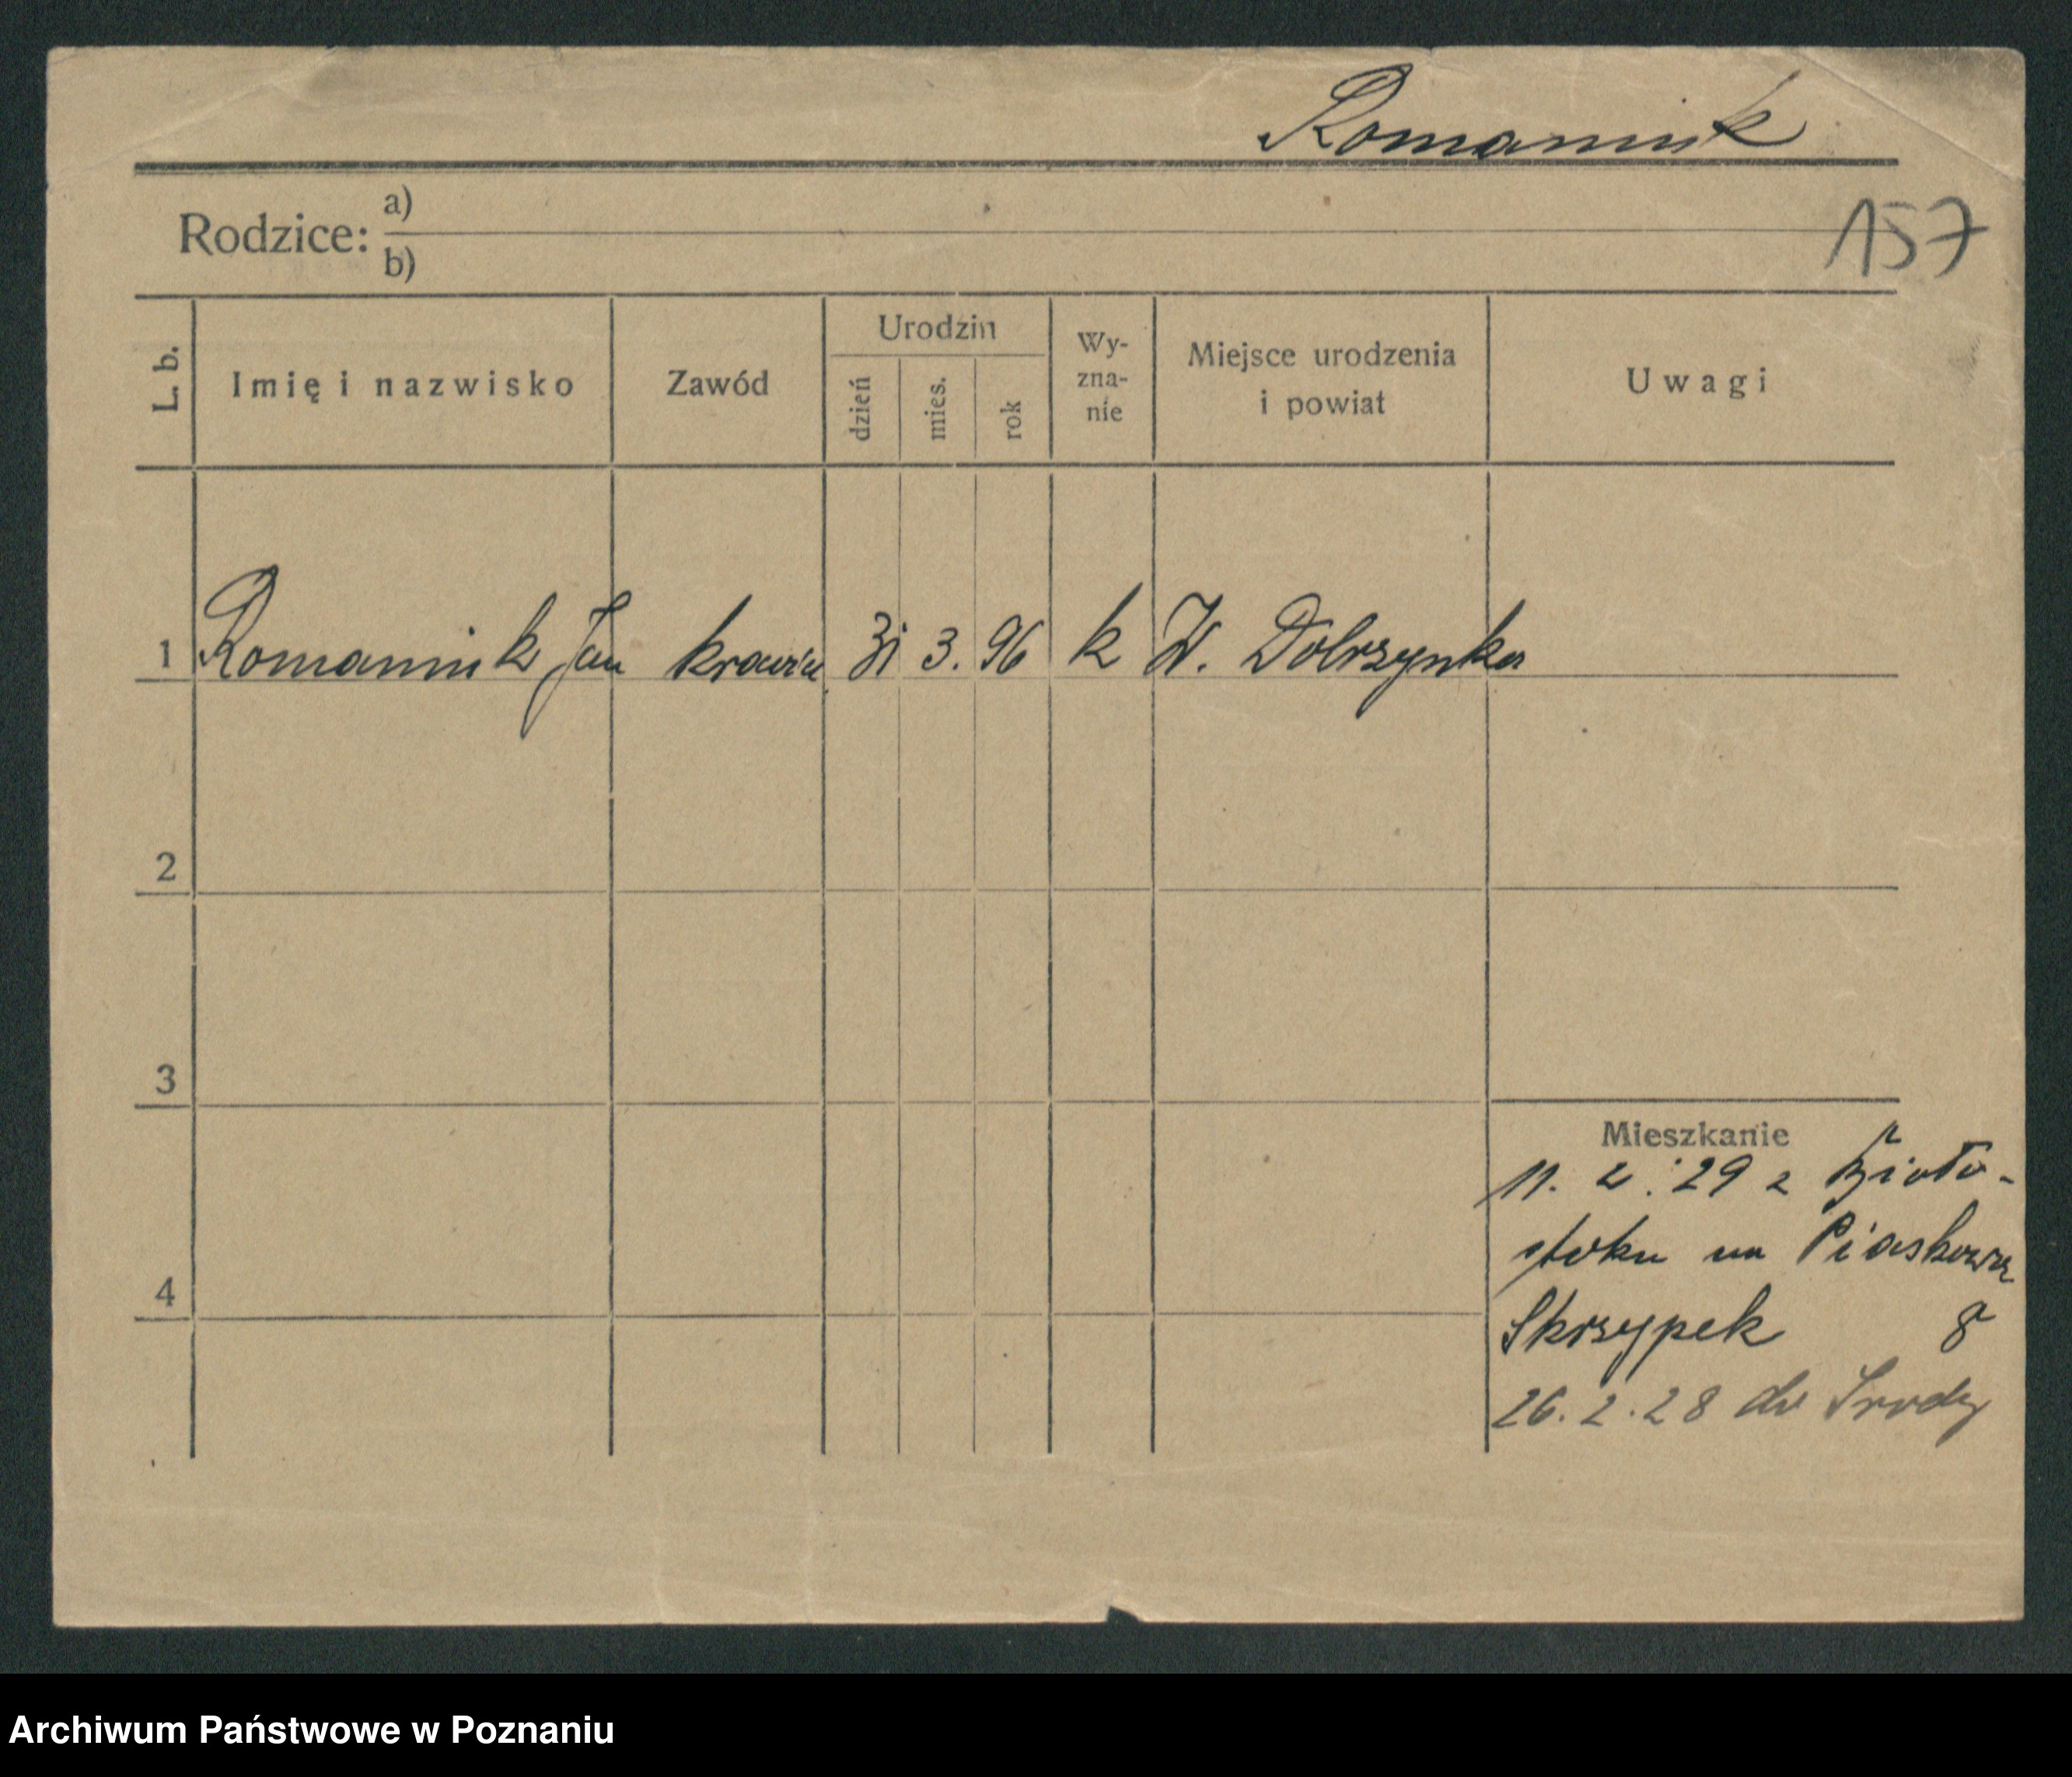 Romaniuk
157
Rodzice: a)
b)
L. b. Imię i nazwisko Zawód Urodzin dzień mies. rok Wy-zna-nie Miejsce urodzenia i powiat Uwagi
1 Romaniuk Jan krawiec 31 3. 96 k W. Dobrzynka
2
3
4
Mieszkanie
11. 2. 29 z Biało-
stoku na Piaskowa
Skrzypek 8
26. 2. 28 do Srody
Archiwum Państwowe w Poznaniu